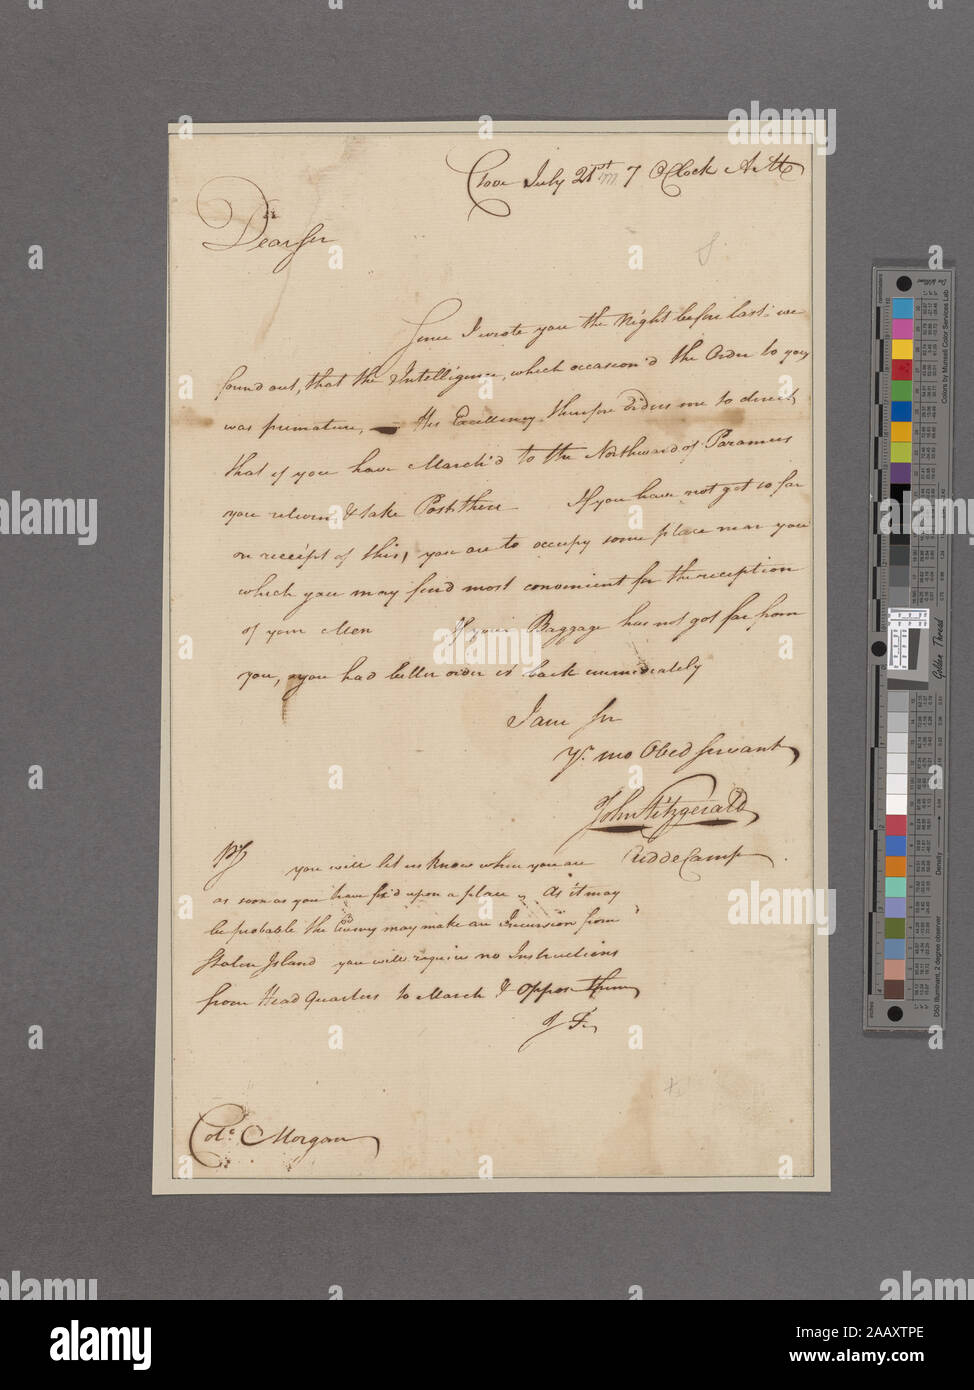 Clove July 21st 7 OClock AM
Dear Sir
Since I wrote you the Night before last we
found out, that the Intelligence, which occasion'd the Order to you
was premature, — His Excellency therefore desires me to direct
that if you have March'd to the Northward of Paramus
you return & take Post there If you have not got so far
on receipt of this, you are to occupy some place near you
which you may find most convenient for the reception
of your Men If your Baggage has not got far from
you, you had better order it back immediately
I am Sir
Yr. mo Obed Servant
John Fitzgerald
Aid de Camp
PS you will let us know when you are
as soon as you have fix'd upon a place, As it may
be probable the Enemy may make an Incursion from
Staten Island you will require no Instructions
from Head Quarters to March & oppose them
J F.
Colo. Morgan
a
alamy
alamy
Image ID: 2AAXTPE
www.alamy.com